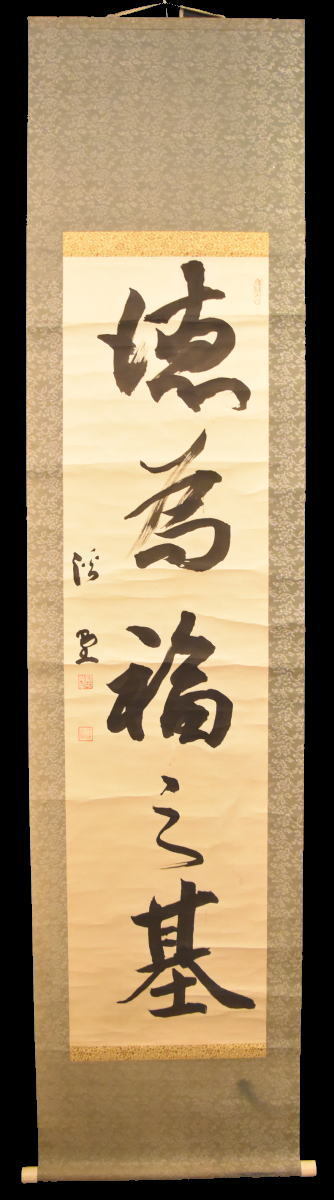 徳為福之基